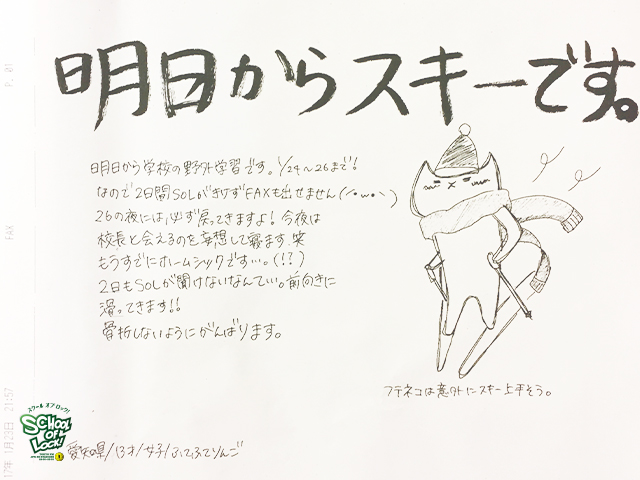 明日からスキーです。
明日から学校の野外学習です。1/24〜26まで!
なので2日間SOLがきけずFAXも出せません(´・ω・`)
26の夜には、必ず戻ってきますよ!今夜は
校長と会えるのを妄想して寝ます、笑
もうすでにホームシックです…。(!?)
2日もSOLが聞けないなんてい。前向きに
滑ってきます!!
骨折しないようにがんばります。
フテネコは意外にスキー上手そう。
スクール オブ ロック!
SCHOOL OF LOCK!
愛知県/13才/女子/ふてふてりんご
P. 01
FAX
17年 1月23日 21:57